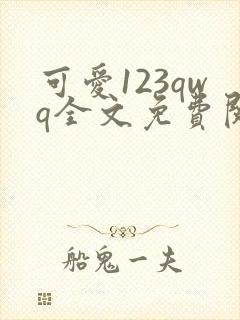 可愛123qw
q全文免費閱
船鬼一夫